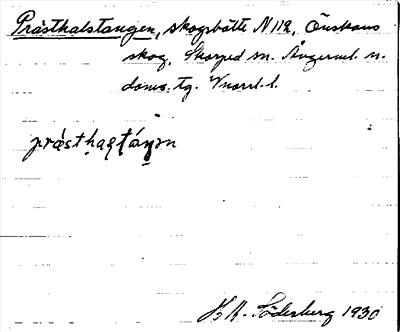 Prästhalstangen, skogsbötte N 112, Önskans
skog, Skorped sn. Ångerml. n.
doms. tg. Vnorrl. l.
præ̀sthaɽʈáŋən
B. A. Söderberg 1930